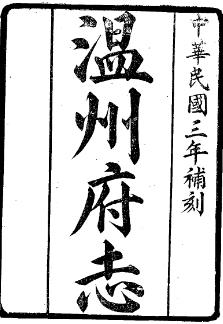 中華民國三年補刻
温州府志